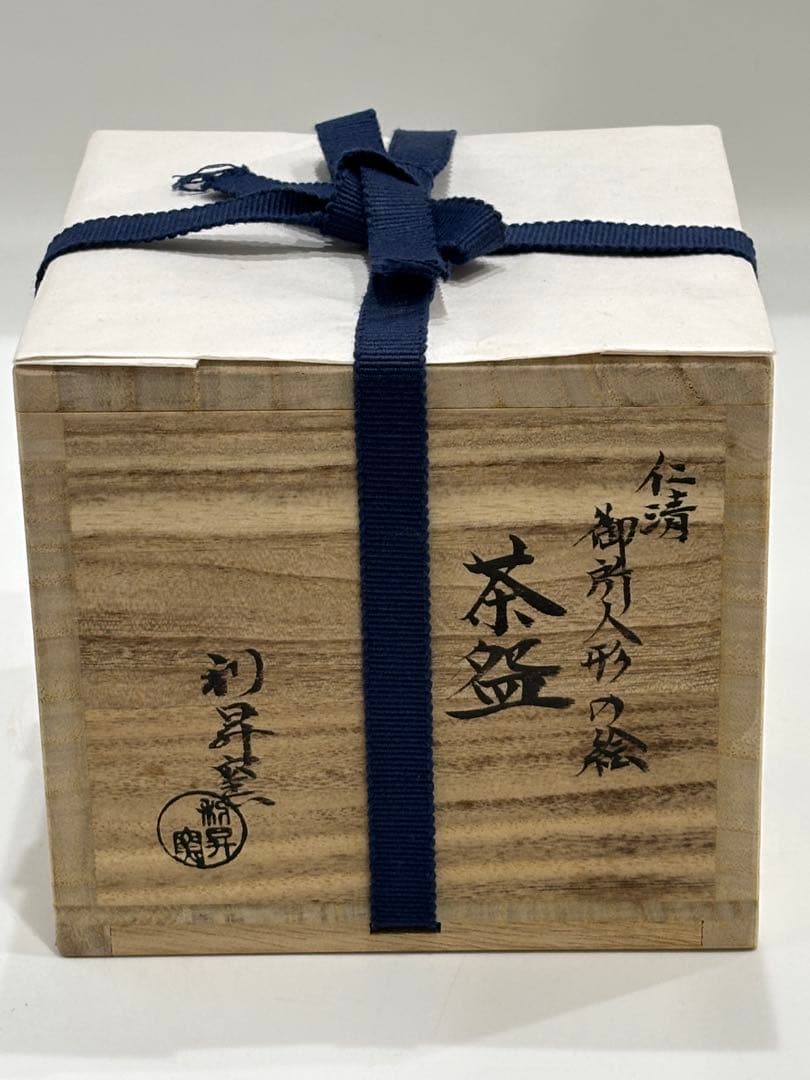 仁清
御所人形の絵
茶盌
利昇窯
利昇
窯